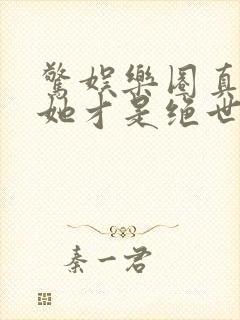 驚娛樂圈真
她才是絕世
秦一君